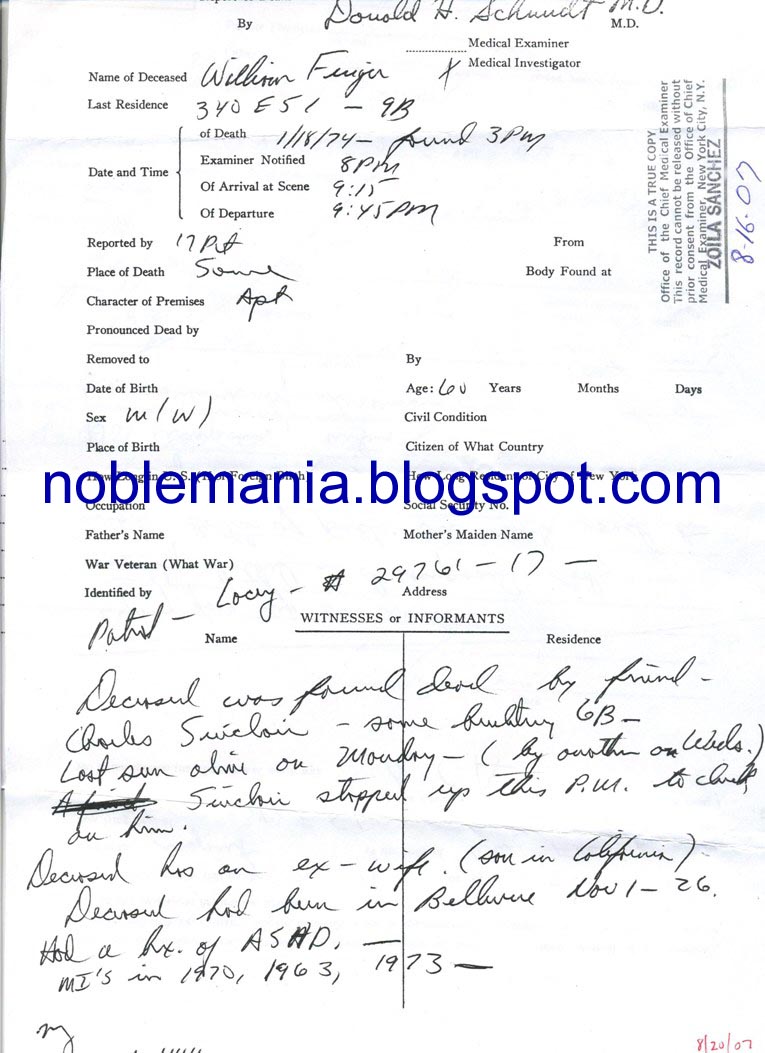 By Donald H. Schmidt M.D.
M.D.
Medical Examiner
X Medical Investigator
Name of Deceased William Finger
Last Residence 340 E 51 - 9B
Date and Time
of Death 1/18/74 - found 3 PM
Examiner Notified 8 PM
Of Arrival at Scene 9:15
Of Departure 9:45 PM
Reported by 17 Pct From
Place of Death Same Body Found at
Character of Premises Apt
Pronounced Dead by
Removed to By
Date of Birth Age: 60 Years Months Days
Sex M (W) Civil Condition
Place of Birth Citizen of What Country
How Long in U. S. (If of Foreign Birth) How Long Resident of City of New York
noblemania.blogspot.com
Occupation Social Security No.
Father's Name Mother's Maiden Name
War Veteran (What War)
Identified by Address
Patrol - - # 29761 - 17 -
WITNESSES or INFORMANTS
Name Residence
Deceased was found dead by friend -
Charles Sinclair - same building 6B -
Last seen alive on Monday - (by another on Weds.)
Sinclair stopped up this P.M. to check
on him.
Deceased has an ex-wife. (son in California)
Deceased had been in Bellevue Nov 1 - 26.
Had a hx. of ASHD. -
MI's in 1970, 1963, 1973 -
THIS IS A TRUE COPY
Office of the Chief Medical Examiner
This record cannot be released without
prior consent from the Office of Chief
Medical Examiner, New York City, N.Y.
ZOILA SANCHEZ
8-16-07
8/20/07